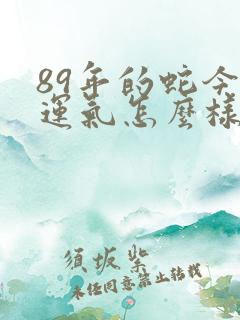 89年的蛇今
運氣怎麼樣
須坂紫
未经同意禁止转载